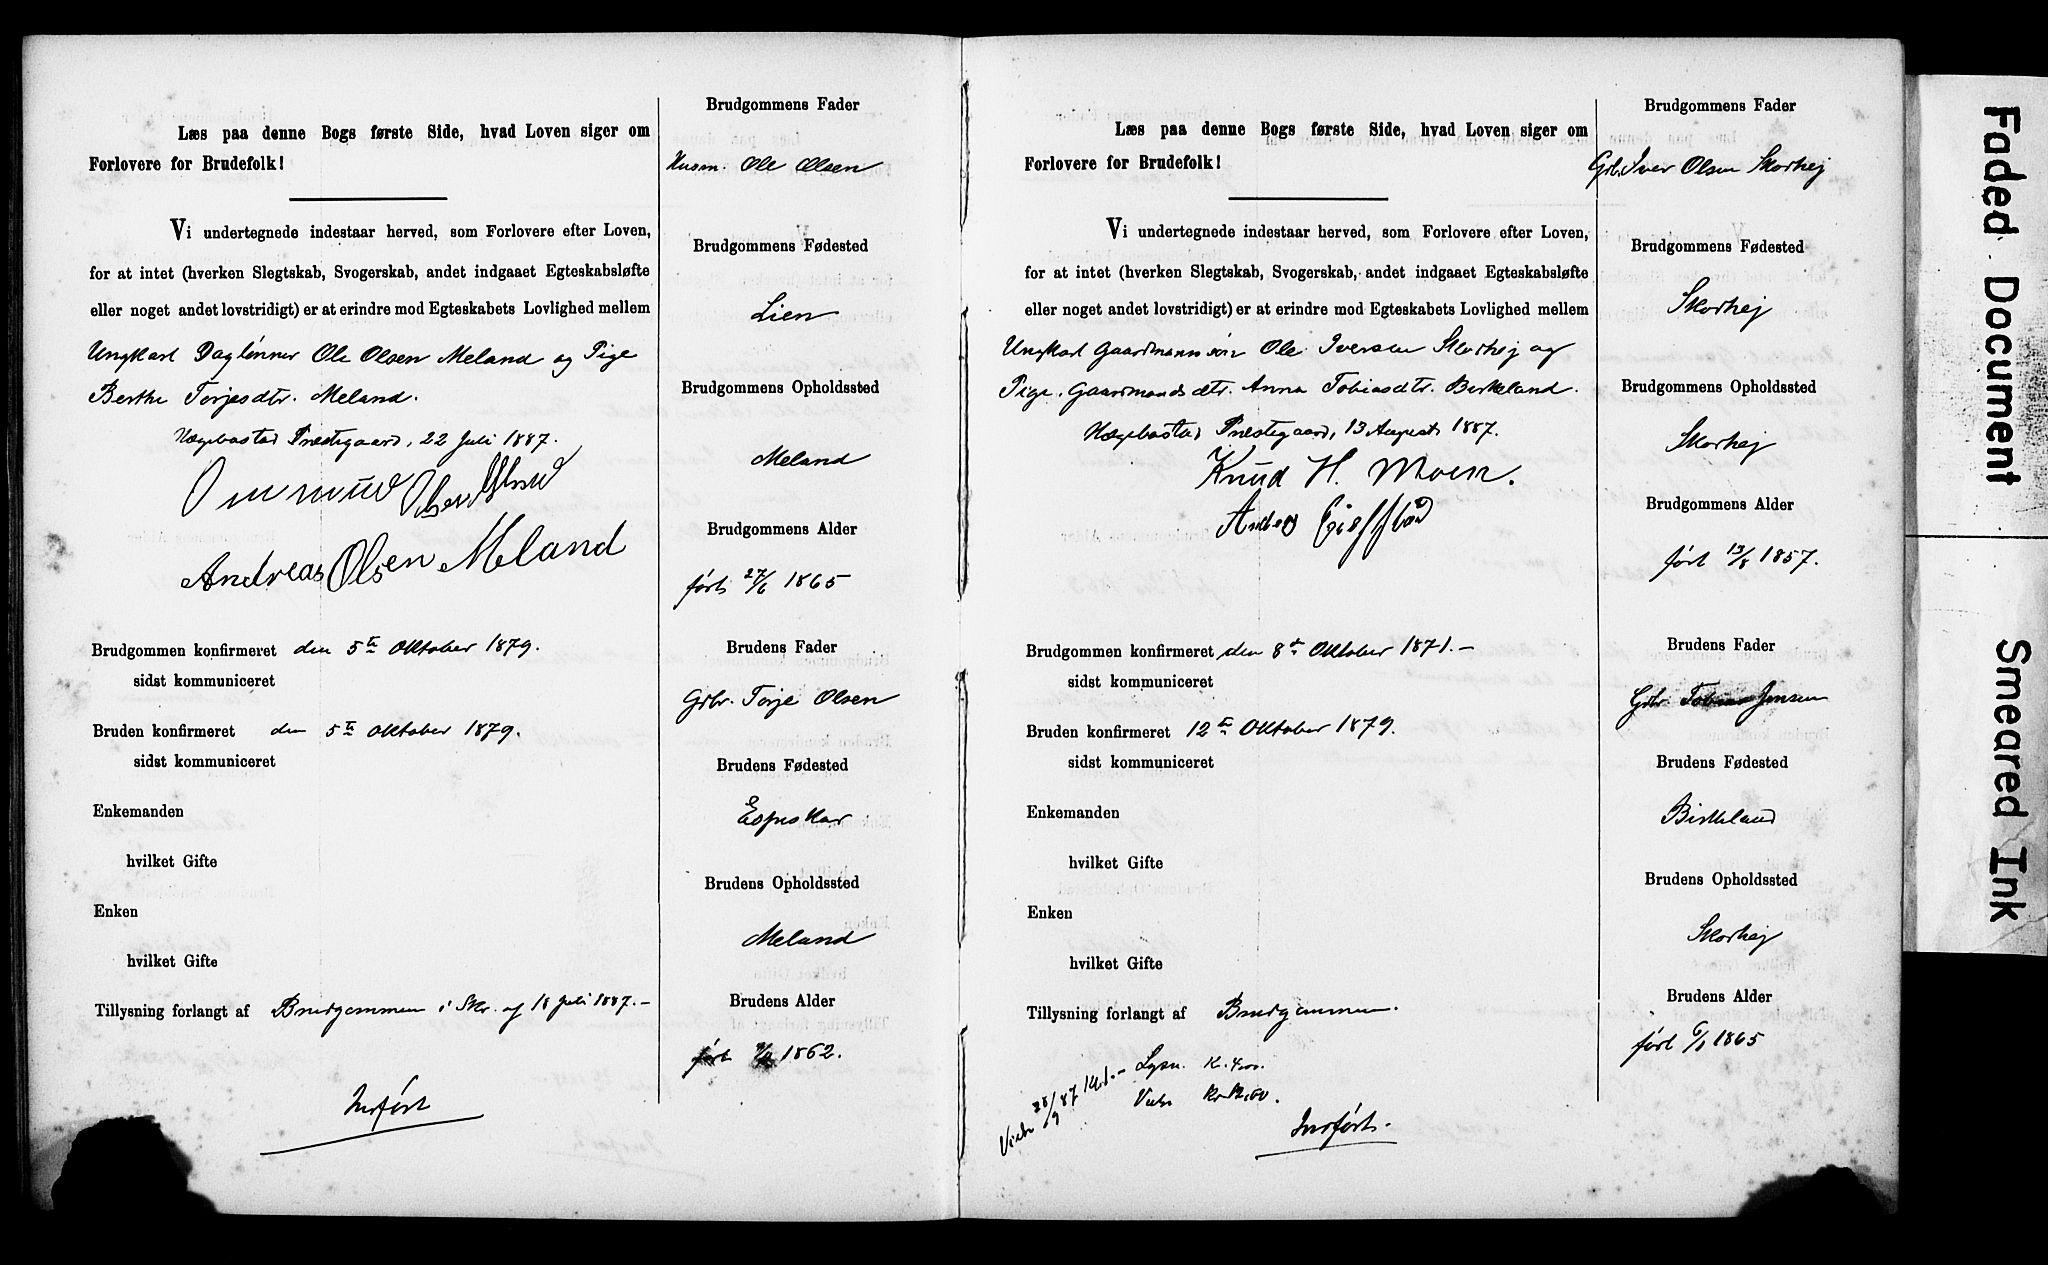 Læs paa denne Bogs første Side, hvad Loven siger om
Forlovere for Brudefolk!
Vi undertegnede indestaar herved, som Forlovere efter Loven,
for at intet (hverken Slegtskab, Svogerskab, andet indgaaet Egteskabsløfte
eller noget andet lovstridigt) er at erindre mod Egteskabets Lovlighed mellem
Ungkarl Daglønner Ole Olsen Meland og Pige
Berthe Torjesdtr. Meland.
Hægebostad Præstegaard, 22 Juli 1887.
Andreas Olsen Meland
Brudgommen konfirmeret den 5te Oktober 1879.
sidst kommuniceret
Bruden konfirmeret den 5te Oktober 1879.
sidst kommuniceret
Enkemanden
hvilket Gifte
Enken
hvilket Gifte
Tillysning forlangt af Brudgommen i Skr. af 18 Juli 1887.-
Indført
Brudgommens Fader
Husm. Ole Olsen
Brudgommens Fødested
Lien
Brudgommens Opholdssted
Meland
Brudgommens Alder
født 27/6 1865
Brudens Fader
Gbr. Torje Olsen
Brudens Fødested
Espeskar
Brudens Opholdssted
Meland
Brudens Alder
født 1862.
Læs paa denne Bogs første Side, hvad Loven siger om
Forlovere for Brudefolk!
Vi undertegnede indestaar herved, som Forlovere efter Loven,
for at intet (hverken Slegtskab, Svogerskab, andet indgaaet Egteskabsløfte
eller noget andet lovstridigt) er at erindre mod Egteskabets Lovlighed mellem
Ungkarl Gaardmannssøn Ole Iversen Skorhej og
Pige, Gaardmandsdtr. Anna Tobiasdtr. Birkeland.
Hægebostad Præstegaard, 13 August 1887.
Knud H. Moen.
Brudgommen konfirmeret den 8de Oktober 1871.-
sidst kommuniceret
Bruden konfirmeret 12te Oktober 1879.
sidst kommuniceret
Enkemanden
hvilket Gifte
Enken
hvilket Gifte
Tillysning forlangt af Brudgommen.
Lysn. K. 4.00.
Viede 28/9 87
Indført.
Brudgommens Fader
Gbr. Iver Olsen Skorhej
Brudgommens Fødested
Skorhej
Brudgommens Opholdssted
Skorhej
Brudgommens Alder
født 13/8 1857.
Brudens Fader
Gbr. Tobias Jensen
Brudens Fødested
Birkeland
Brudens Opholdssted
Skorhej
Brudens Alder
født 6/1 1865
Faded Document
Smeared Ink